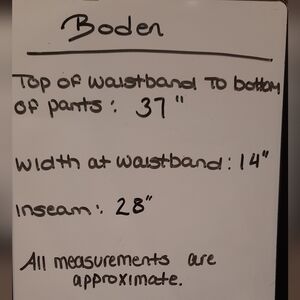 Boden
Top of waistband to bottom
of pants: 37"
width at waistband: 14"
inseam: 28"
All measurements are
approximate.